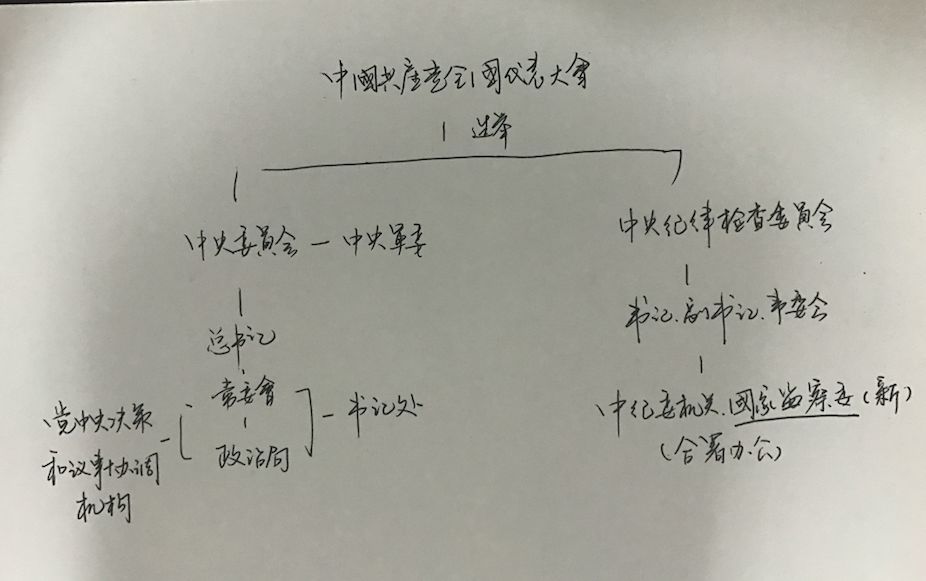 中國共产党全國代表大會
选举
中央委員会 — 中央軍委
中央纪律检查委員会
总书记
书记、副书记、常委会
常委會
政治局
书记处
党中央决策
和议事协调
机构
中纪委机关、國家监察委(新)
(合署办公)